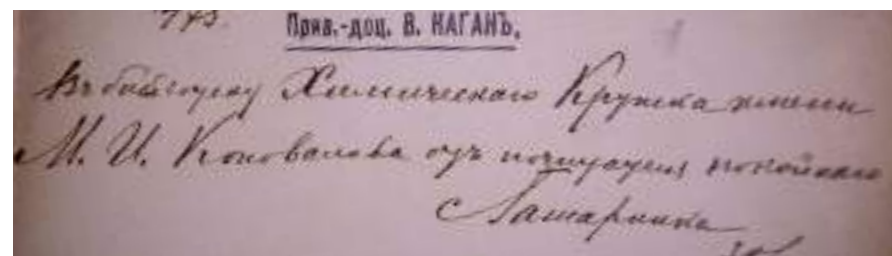 775.
Прив.-доц. В. КАГАНЪ.
Въ библіотеку Химическаго Кружка имени
М. И. Коновалова отъ почитателя покойнаго